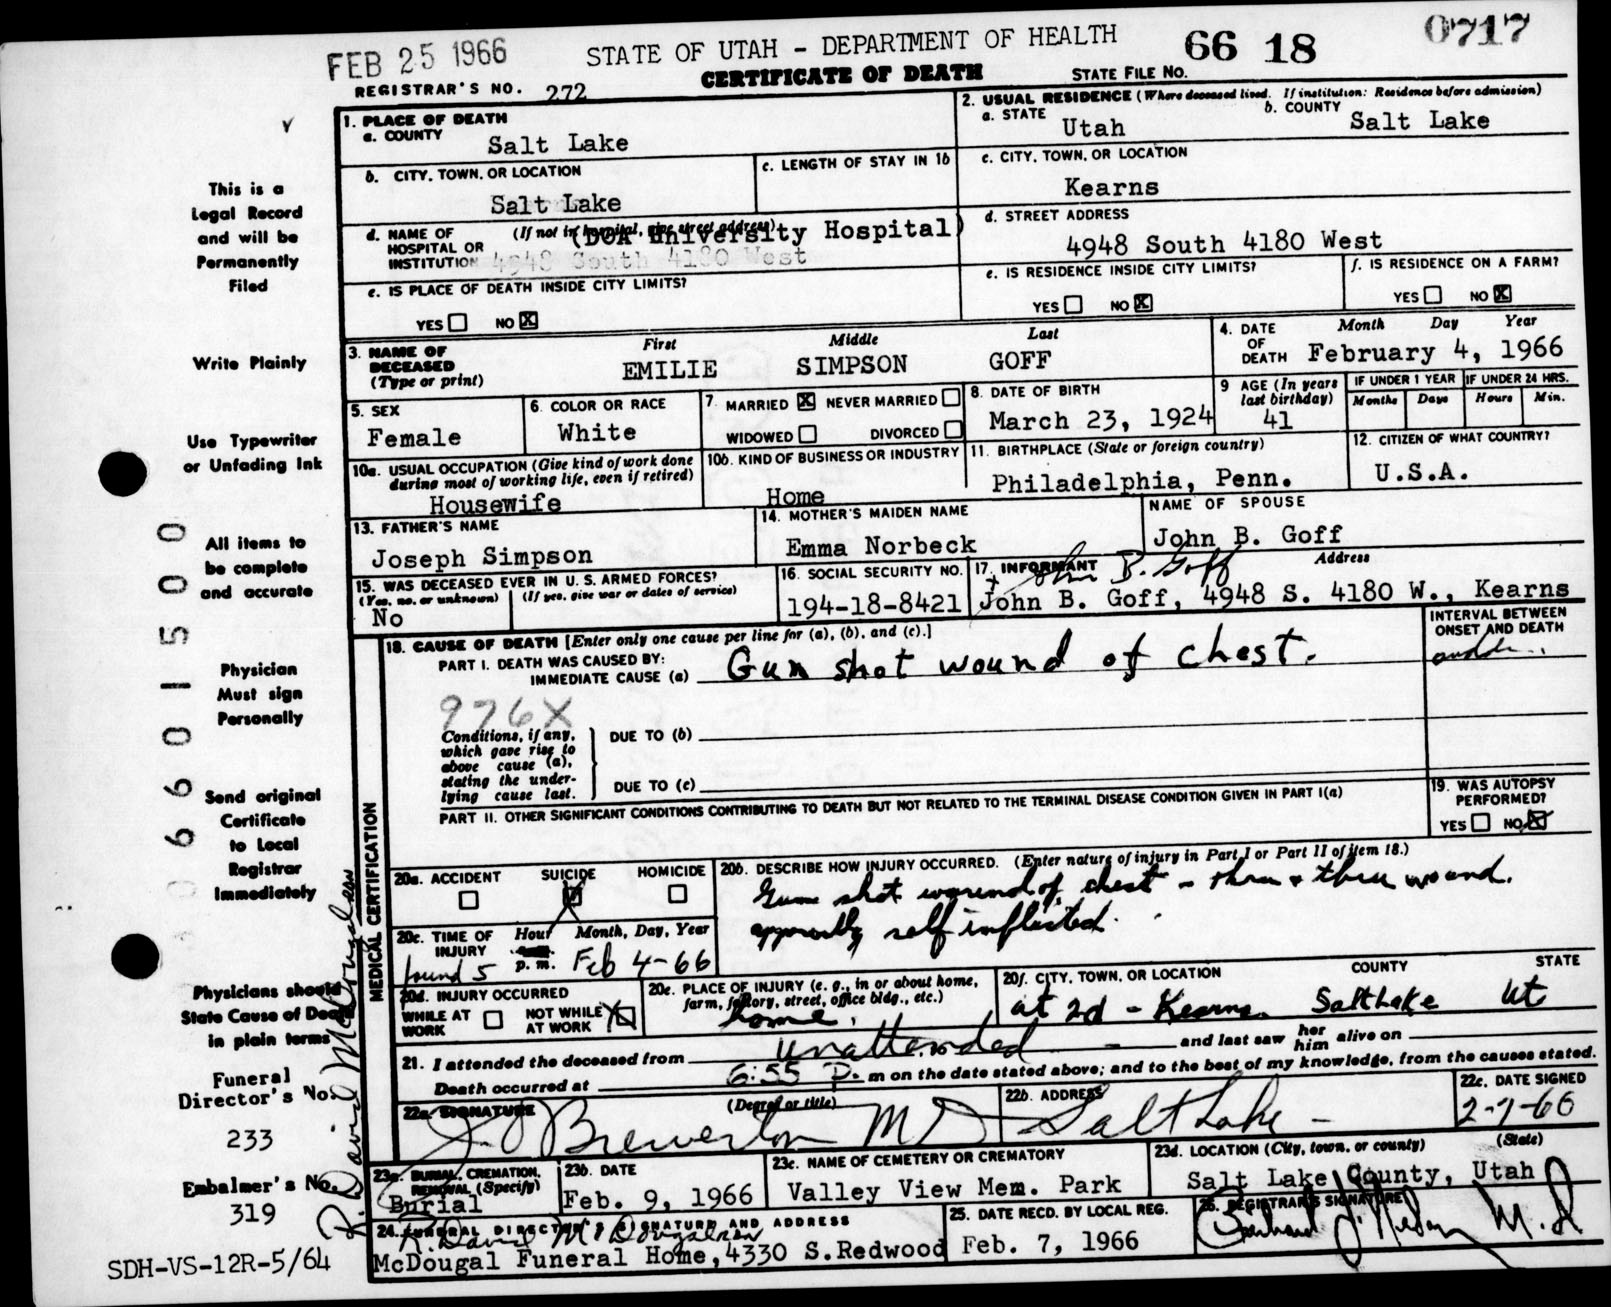 FEB 25 1966 STATE OF UTAH - DEPARTMENT OF HEALTH 66 18 0717
CERTIFICATE OF DEATH STATE FILE NO.
REGISTRAR'S NO. 272
1. PLACE OF DEATH
a. COUNTY Salt Lake
2. USUAL RESIDENCE (Where deceased lived. If institution: Residence before admission)
a. STATE Utah b. COUNTY Salt Lake
b. CITY, TOWN, OR LOCATION Salt Lake
c. LENGTH OF STAY IN 1b
c. CITY, TOWN, OR LOCATION Kearns
d. NAME OF HOSPITAL OR INSTITUTION (If not in hospital, give street address)
(DOA University Hospital)
4948 South 4180 West
d. STREET ADDRESS
4948 South 4180 West
e. IS PLACE OF DEATH INSIDE CITY LIMITS?
YES NO X
e. IS RESIDENCE INSIDE CITY LIMITS?
YES NO X
f. IS RESIDENCE ON A FARM?
YES NO X
3. NAME OF DECEASED (Type or print)
First Middle Last
EMILIE SIMPSON GOFF
4. DATE OF DEATH Month Day Year
February 4, 1966
5. SEX Female
6. COLOR OR RACE White
7. MARRIED X NEVER MARRIED
WIDOWED DIVORCED
8. DATE OF BIRTH March 23, 1924
9 AGE (In years last birthday) 41
IF UNDER 1 YEAR Months Days
IF UNDER 24 HRS. Hours Min.
10a. USUAL OCCUPATION (Give kind of work done during most of working life, even if retired)
Housewife
10b. KIND OF BUSINESS OR INDUSTRY
Home
11. BIRTHPLACE (State or foreign country)
Philadelphia, Penn.
12. CITIZEN OF WHAT COUNTRY?
U.S.A.
13. FATHER'S NAME
Joseph Simpson
14. MOTHER'S MAIDEN NAME
Emma Norbeck
NAME OF SPOUSE
John B. Goff
15. WAS DECEASED EVER IN U. S. ARMED FORCES?
(Yes, no, or unknown) (If yes, give war or dates of service)
No
16. SOCIAL SECURITY NO.
194-18-8421
17. INFORMANT Address
John B. Goff
John B. Goff, 4948 S. 4180 W., Kearns
MEDICAL CERTIFICATION
18. CAUSE OF DEATH [Enter only one cause per line for (a), (b), and (c).]
INTERVAL BETWEEN ONSET AND DEATH
PART I. DEATH WAS CAUSED BY:
IMMEDIATE CAUSE (a) Gun shot wound of chest.
976X
Conditions, if any, which gave rise to above cause (a), stating the underlying cause last.
DUE TO (b)
DUE TO (c)
PART II. OTHER SIGNIFICANT CONDITIONS CONTRIBUTING TO DEATH BUT NOT RELATED TO THE TERMINAL DISEASE CONDITION GIVEN IN PART I(a)
19. WAS AUTOPSY PERFORMED?
YES NO X
20a. ACCIDENT SUICIDE X HOMICIDE
20b. DESCRIBE HOW INJURY OCCURRED. (Enter nature of injury in Part I or Part II of item 18.)
Gun shot wound of chest - thru & thru wound.
apparently self inflicted.
20c. TIME OF INJURY Hour Month, Day, Year
found 5 p. m. Feb 4-66
20d. INJURY OCCURRED
WHILE AT WORK NOT WHILE AT WORK X
20e. PLACE OF INJURY (e. g., in or about home, farm, factory, street, office bldg., etc.)
home.
20f. CITY, TOWN, OR LOCATION COUNTY STATE
at 2d - Kearns. Salt Lake Ut
21. I attended the deceased from unattended and last saw her him alive on
Death occurred at 6:55 P. m on the date stated above; and to the best of my knowledge, from the causes stated.
22a. SIGNATURE (Degree or title)
Brewerton MD
22b. ADDRESS
Salt Lake -
22c. DATE SIGNED
2-7-66
23a. BURIAL, CREMATION, REMOVAL (Specify)
Burial
23b. DATE
Feb. 9, 1966
23c. NAME OF CEMETERY OR CREMATORY
Valley View Mem. Park
23d. LOCATION (City, town, or county) (State)
Salt Lake County, Utah
24. FUNERAL DIRECTOR'S SIGNATURE AND ADDRESS
R. David McDougal
McDougal Funeral Home, 4330 S.Redwood
25. DATE RECD. BY LOCAL REG.
Feb. 7, 1966
26. REGISTRAR'S SIGNATURE
M.D
This is a
Legal Record
and will be
Permanently
Filed
Write Plainly
Use Typewriter
or Unfading Ink
All items to
be complete
and accurate
Physician
Must sign
Personally
Send original
Certificate
to Local
Registrar
Immediately
Physicians should
State Cause of Death
in plain terms
Funeral
Director's No.
233
Embalmer's No.
319
R. David McDougal
0660150 0
SDH-VS-12R-5/64